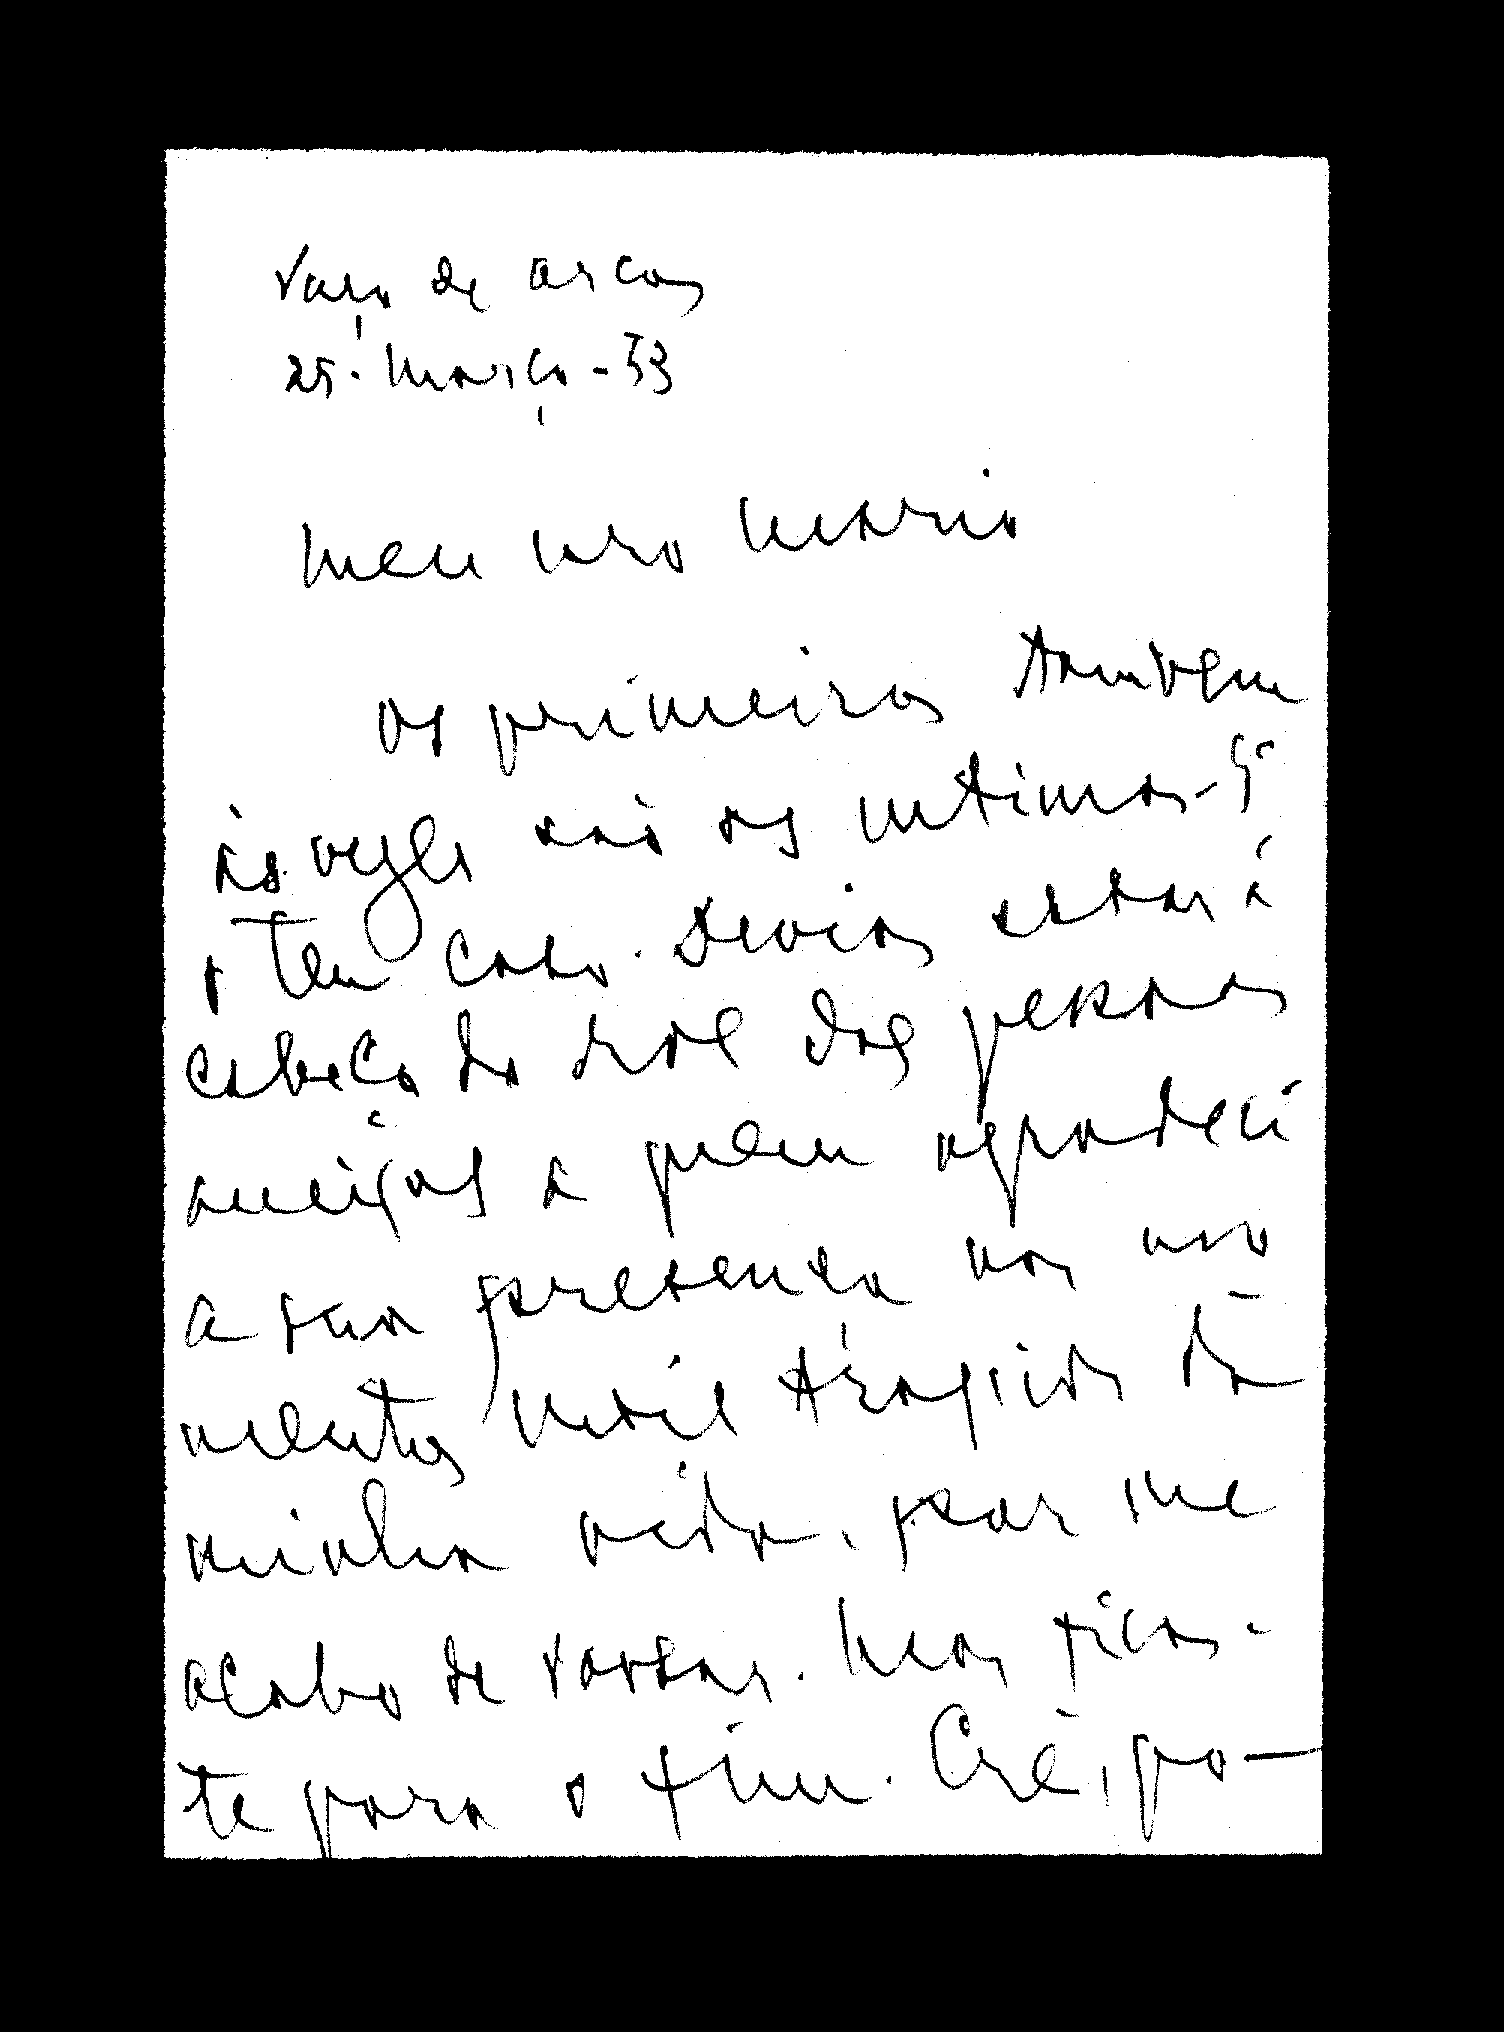 Paço de Arcos
25. Março - 53
Meu caro Mario
Os primeiros tambem
ás vezes são os ultimos - É
o teu caso. Devias estar á
cabeça do rol das pessoas
amigas a quem agradeci
a sua presença nos mo
mentos mais tragicos da
minha vida, por que
acabo de passar. Mas ficas-
te para o fim. Crê, po-